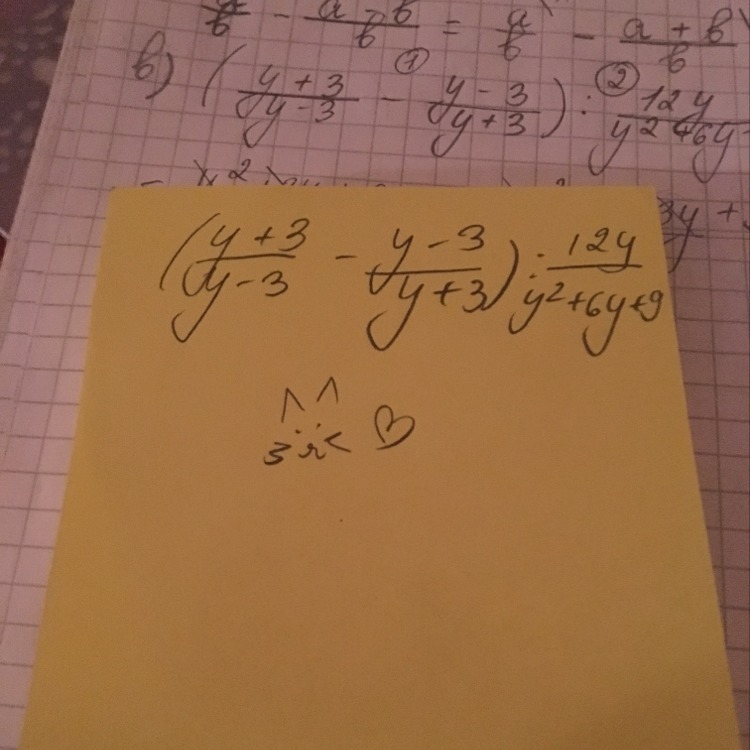 a/b - (a - b)/b = a/b - (a + b)/b
в) ( (y + 3)/(y - 3) - (y - 3)/(y + 3) ) : 12y/(y² + 6y
① ②
( (y + 3)/(y - 3) - (y - 3)/(y + 3) ) : 12y/(y² + 6y + 9)